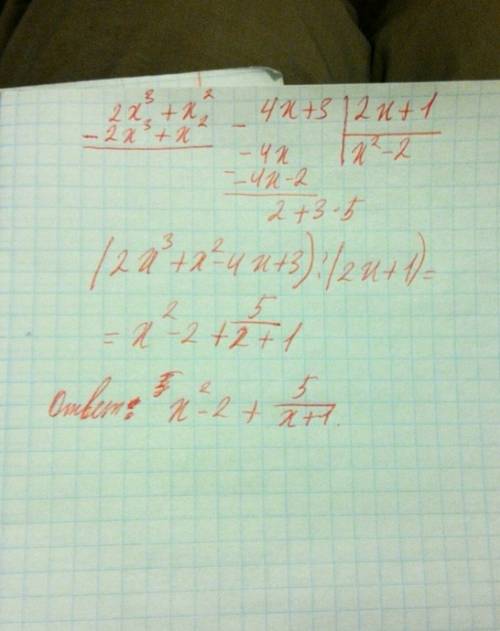 2x³ + x² - 4x+3 | 2x+1
- 2x³ + x² - 4x | x² - 2
- -4x - 2
2 + 3 - 5
(2x³ + x² - 4x + 3) : (2x+1) =
= x² - 2 + 5/(x+1)
Ответ: x² - 2 + 5/(x+1).